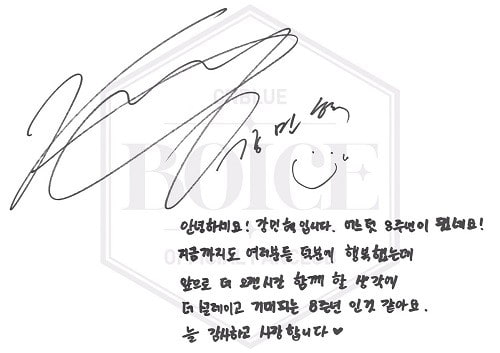 강민혁
ONBLUE
BOICE
안녕하세요! 강민혁입니다. 어느덧 8주년이 됐네요!
지금까지도 여러분들 덕분에 행복했는데
앞으로 더 오랜시간 함께 할 생각에
더 설레이고 기대되는 8주년 인것 같아요.
늘 감사하고 사랑합니다♥